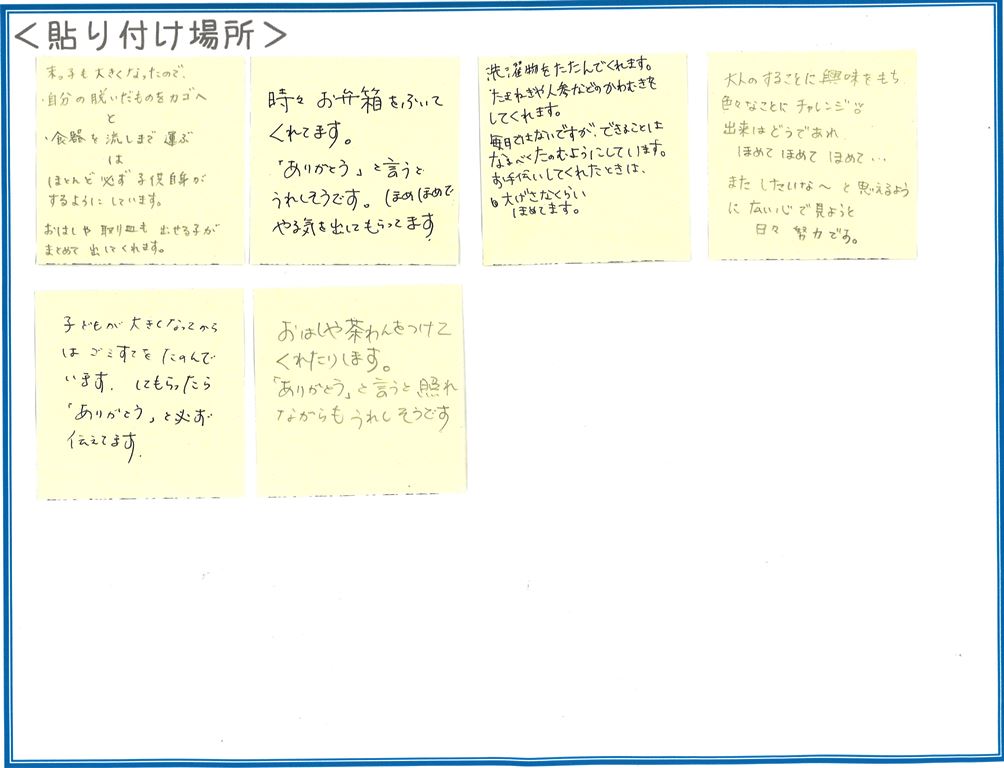 ＜貼り付け場所＞
末っ子も大きくなったので、
・自分の脱いだものをカゴへ
と
・食器を流しまで運ぶ
は
ほとんど必ず子供自身が
するようにしています。
おはしや取り皿も出せる子が
まとめて出してくれます。
時々お弁箱をふいて
くれてます。
「ありがとう」と言うと
うれしそうです。ほめほめで
やる気を出してもらってます
洗濯物をたたんでくれます。
たまねぎや人参などのかわむきを
してくれます。
毎日ではないですが、できることは
なるべくたのむようにしています。
お手伝いしてくれたときは、
大げさなくらい
ほめてます。
大人のすることに興味をもち
色々なことにチャレンジ
出来はどうであれ
ほめてほめてほめて…
またしたいな〜と思えるよう
に広い心で見ようと
日々努力です。
子どもが大きくなってから
はゴミすてをたのんで
います。してもらったら
「ありがとう」と必ず
伝えてます。
おはしや茶わんをつけて
くれたりします。
「ありがとう」と言うと照れ
ながらもうれしそうです